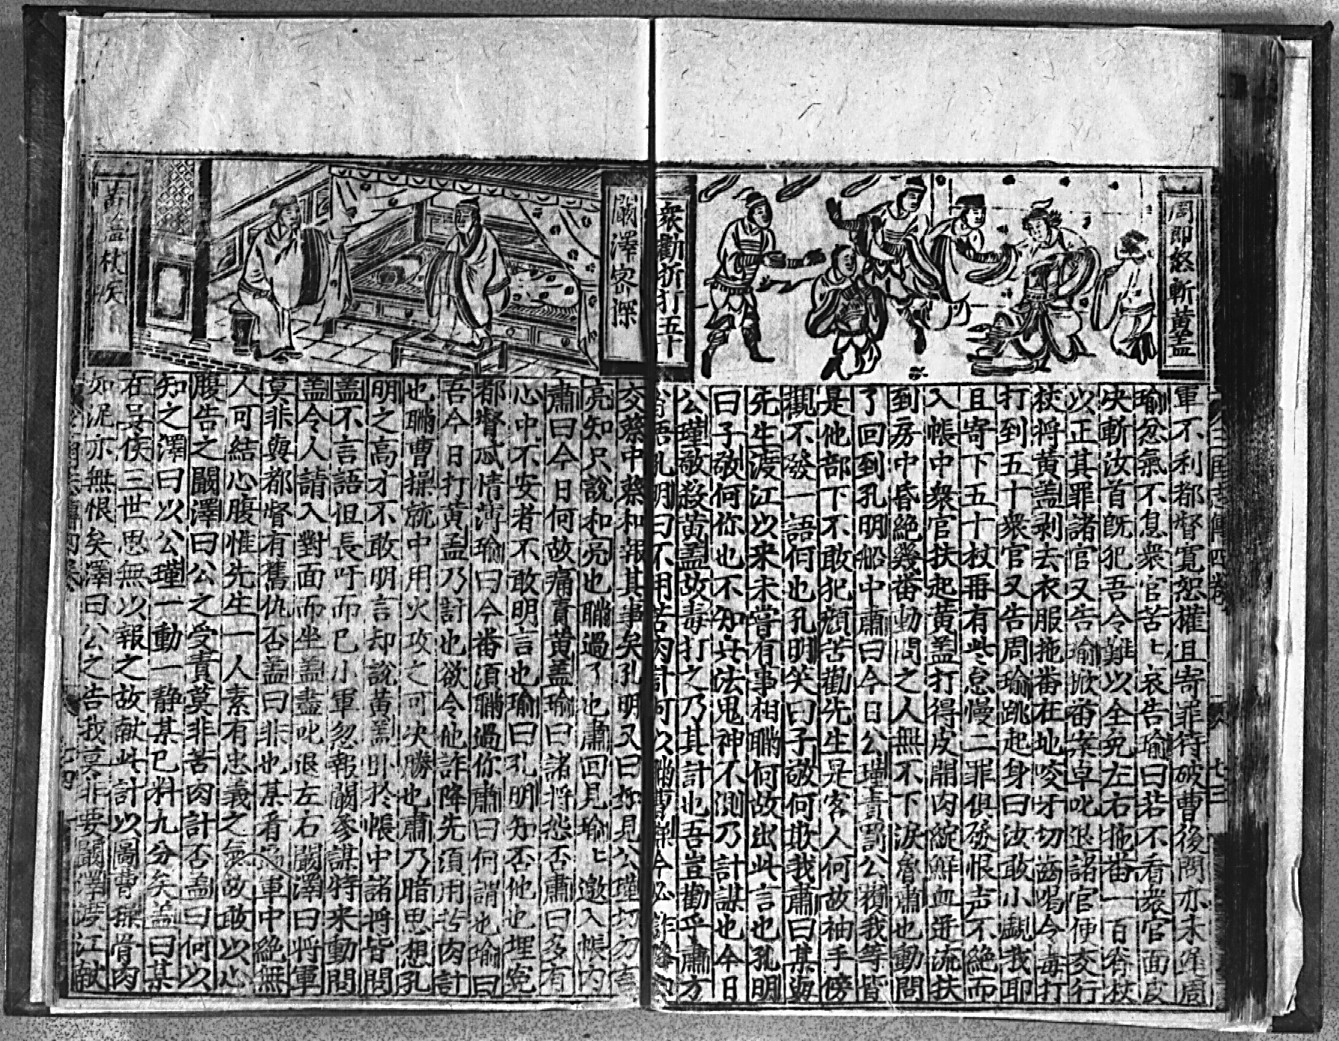 周郎怒斬黃盖
衆勸折打五十
軍不利都督寬恕權且寄罪待破曹後問亦未遲周
瑜忿氣不息衆官苦〻哀告瑜曰若不看衆官面皮
决斬汝首旣犯吾令難以全免左右拖番一百脊杖
以正其罪諸官又告瑜掀番案卓叱退諸官便交行
杖将黄盖剥去衣服拖番在地咬牙切齒喝令毒打
打到五十衆官又告周瑜跳起身曰汝敢小覷我耶
且寄下五十杖再有些怠慢二罪俱發恨声不絶而
入帳中衆官扶起黄盖打得皮開肉綻鮮血迸流扶
到房中昏絶幾番動問之人無不下淚魯肅也動問
了回到孔明船中肅曰今日公瑾責罰公覆我等皆
是他部下不敢犯顔苦勸先生是客人何故袖手傍
觀不發一語何也孔明笑曰子敬何欺我肅曰某與
先生渡江以來未嘗有事相瞞何故出此言也孔明
曰子敬何你也不知兵法鬼神不測乃計謀也今日
公瑾敬殺黄盖故毒打之乃其計也吾豈勸乎肅方
省悟孔明曰不用苦肉計何以瞞曹操今必詐降
闞澤密深
黃盖杖疾
交蔡中蔡和報其事矣孔明又曰子見公瑾切勿言
亮知只說和亮也瞞過了也肅回見瑜〻邀入帳内
肅曰今日何故痛責黄蓋瑜曰諸将怨否肅曰多有
心中不安者不敢明言也瑜曰孔明知否他也埋寃
都督忒情薄瑜曰今番須瞞過你肅曰何謂也瑜曰
吾今日打黄盖乃計也欲令他詐降先須用苦肉計
也瞞曹操就中用火攻之可决勝也肅乃暗思想孔
明之高才不敢明言却說黄盖卧於帳中諸将皆問
盖不言語但長吁而已小軍忽報闞參謀特來動問
盖令人請入對面而坐盖盡叱退左右闞澤曰將軍
莫非與都督有舊仇否盖曰非也某看軍中絶無
人可結心腹惟先生一人素有忠義之氣故敢以心
腹告之闞澤曰公之受責莫非苦肉計否盖曰何以
知之澤曰以公瑾一動一靜某已料九分矣盖曰某
在吳侯三世恩無以報之故献此計以圖曹操骨肉
如泥亦無恨矣澤曰公之告我莫非要闞澤渡江献